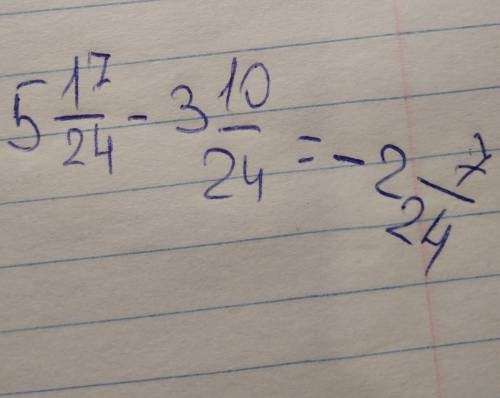 5 17/24 - 3 10/24 = - 2 7/24